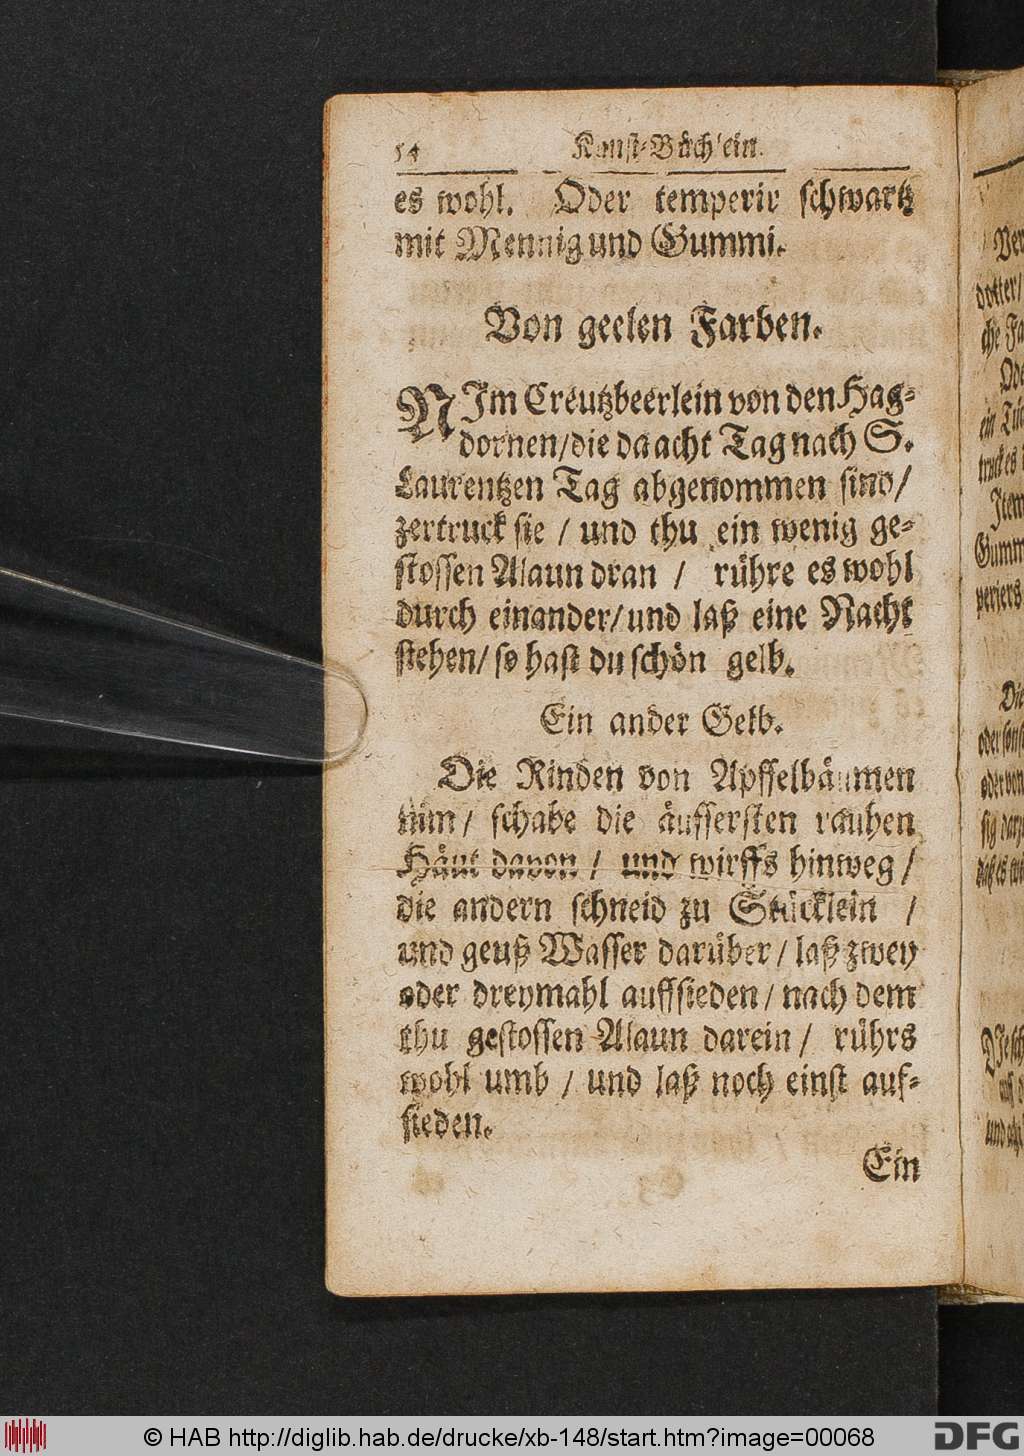 54 Kunst-Büchlein.
es wohl. Oder temperir schwartz
mit Mennig und Gummi.
Von geelen Farben.
NIm Creutzbeerlein von den Hag-
dornen/die da acht Tag nach S.
Laurentzen Tag abgenommen sind/
zertruck sie / und thu ein wenig ge-
stossen Alaun dran / rühre es wohl
durch einander/und laß eine Nacht
stehen/ so hast du schön gelb.
Ein ander Gelb.
Die Rinden von Apffelbäumen
nim/ schabe die äussersten rauhen
Häut davon / und wirffs hinweg /
die andern schneid zu Stücklein /
und geuß Wasser darüber / laß zwey
oder dreymahl auffsieden / nach dem
thu gestossen Alaun darein / rührs
wohl umb / und laß noch einst auf-
sieden.
Ein
© HAB http://diglib.hab.de/drucke/xb-148/start.htm?image=00068
DFG